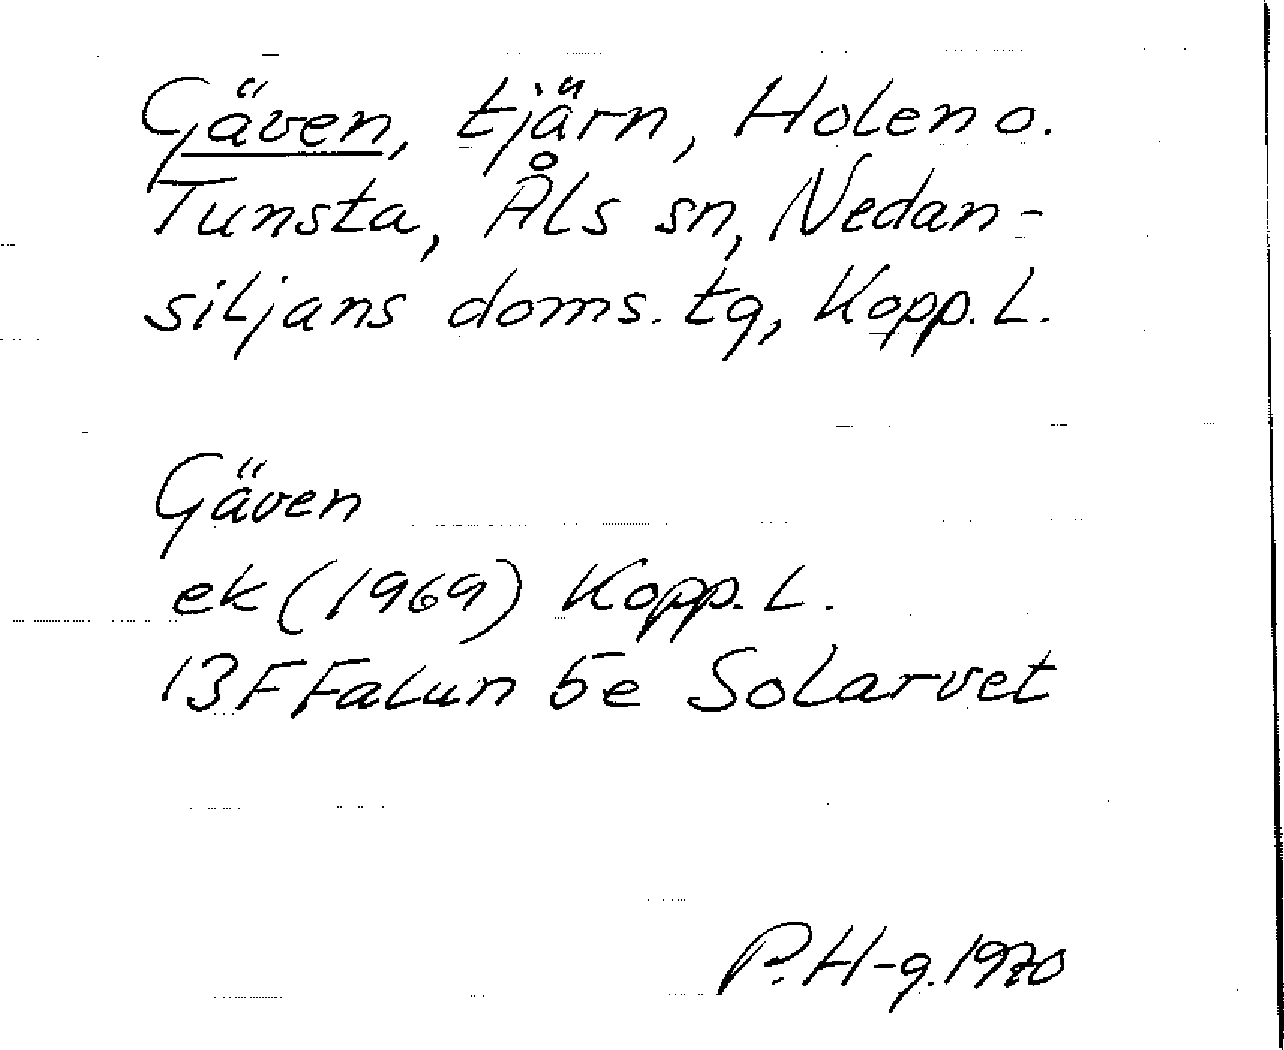 Gäven, tjärn, Holen o.
Tunsta, Åls sn, Nedan-
siljans doms. tg, Kopp. L.
Gäven
ek (1969) Kopp. L.
13F Falun 5e Solarvet
P. H-g. 1970